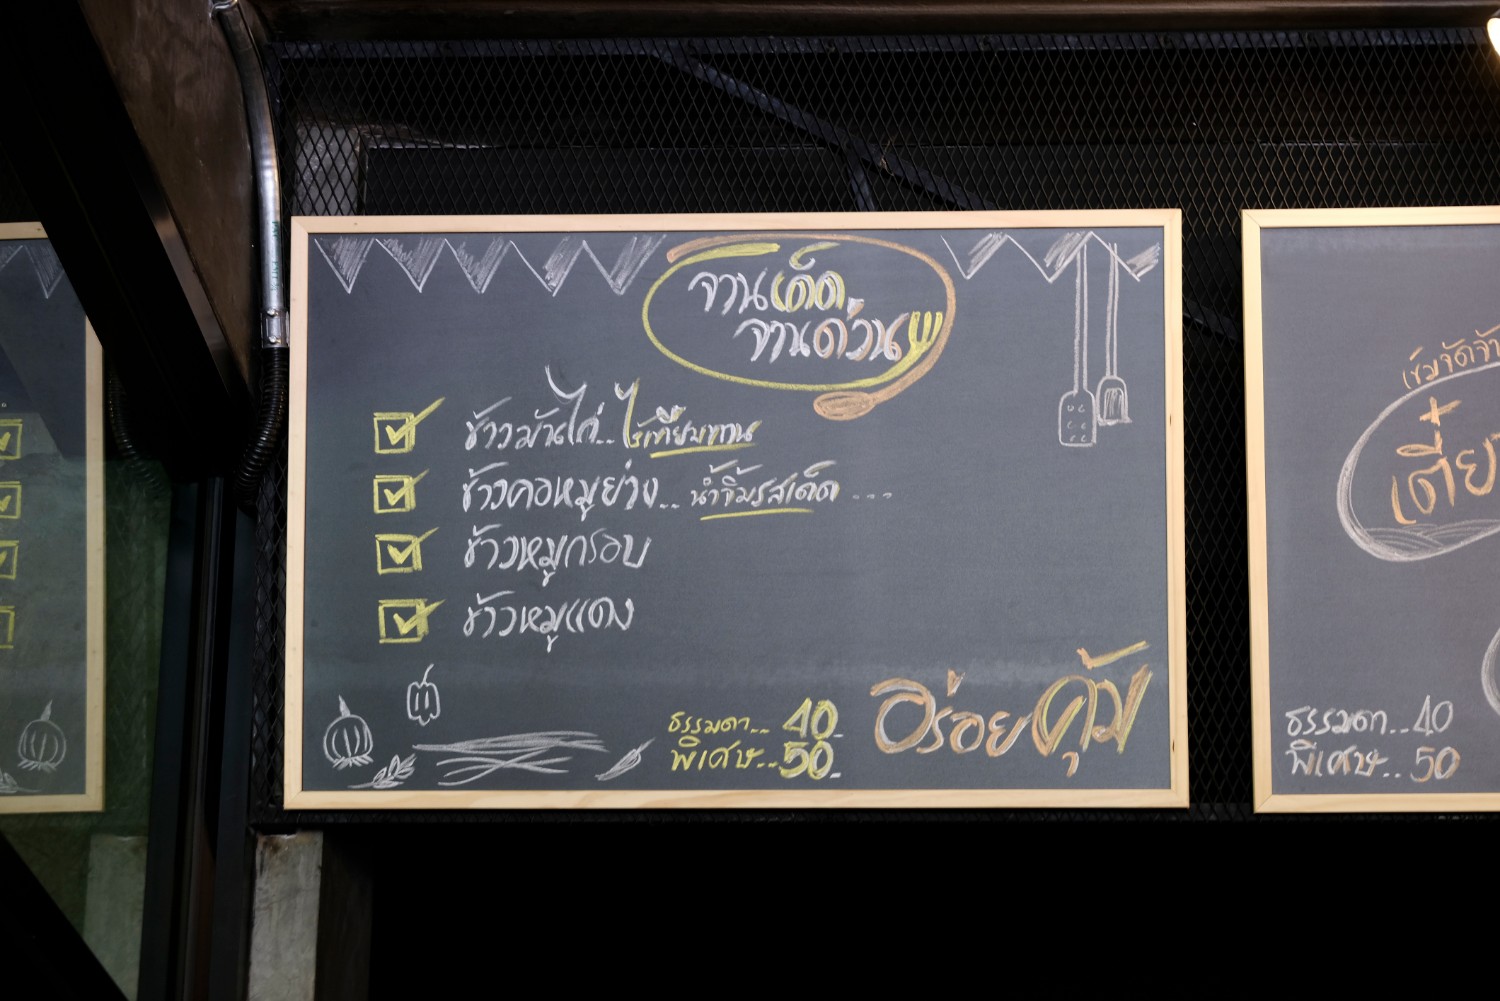 จานเด็ด
จานด่วน
ข้าวมันไก่..ไร้เทียมทาน
ข้าวคอหมูย่าง..น้ำจิ้มรสเด็ด...
ข้าวหมูกรอบ
ข้าวหมูแดง
ธรรมดา..40.
พิเศษ..50.
อร่อยคุ้ม
เข้มจัดจ้า
เตี๋ย
ธรรมดา..40
พิเศษ..50